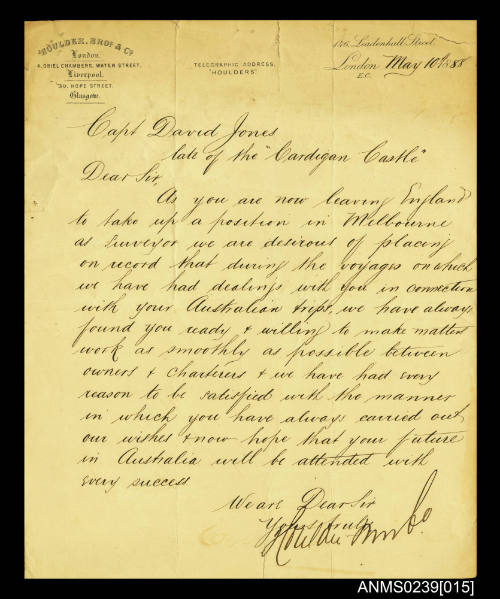 HOULDER, BROS & CO
London.
4, ORIEL CHAMBERS, WATER STREET,
Liverpool.
30, HOPE STREET,
Glasgow.
TELEGRAPHIC ADDRESS,
"HOULDERS"
146, Leadenhall Street
London May 10th 1888
E.C.
Capt David Jones
late of the "Cardigan Castle"
Dear Sir,
As you are now leaving England
to take up a position in Melbourne
as Surveyor we are desirous of placing
on record that during the voyages on which
we have had dealings with you in connection
with your Australian trips, we have always
found you ready & willing to make matters
work as smoothly as possible between
owners & charterers & we have had every
reason to be satisfied with the manner
in which you have always carried out
our wishes & now hope that your future
in Australia will be attended with
every success
We are Dear Sir
Yours truly
Houlder Bros & Co
ANMS0239[015]